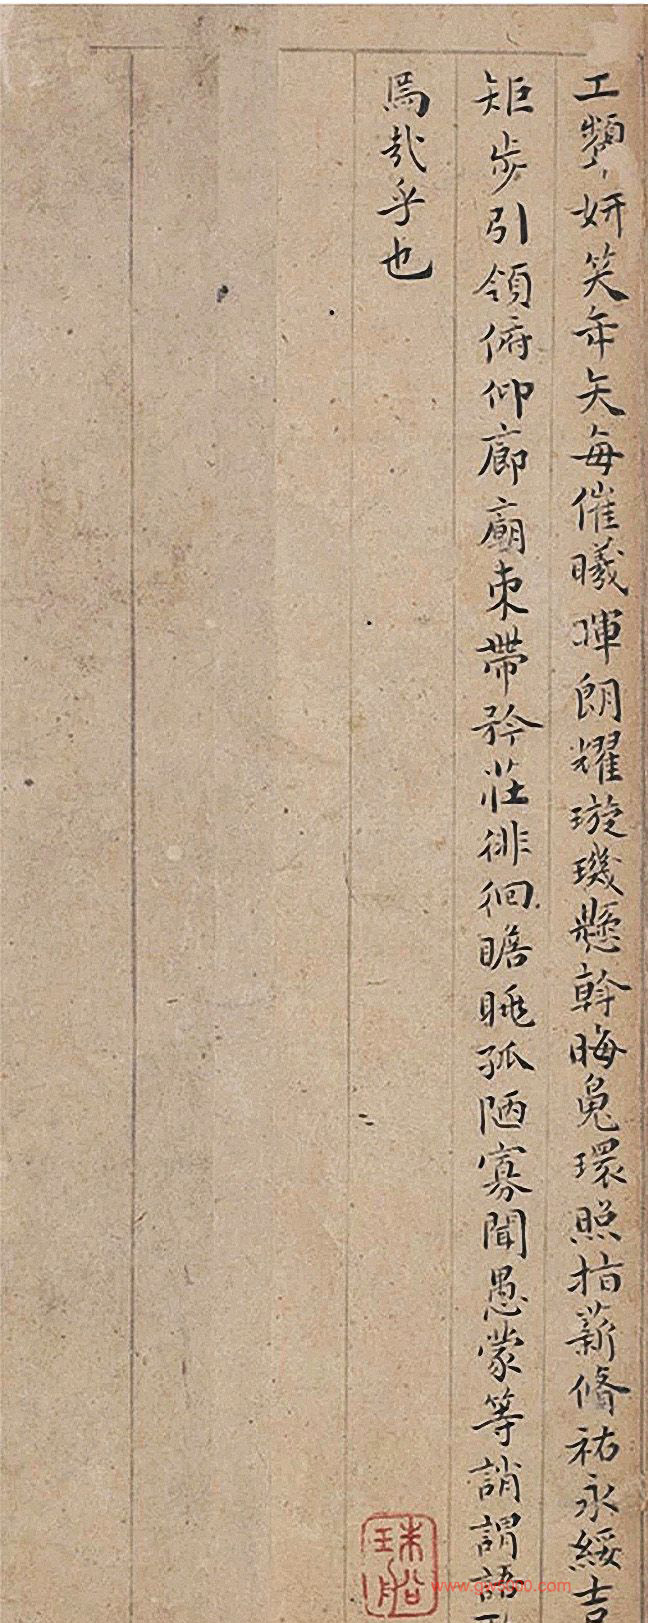 工顰妍笑年矢每催曦暉朗耀璇璣懸斡晦魄環照指薪脩祐永綏吉
矩步引領俯仰廊廟束帶矜莊徘徊瞻眺孤陋寡聞愚蒙等誚謂語
焉哉乎也